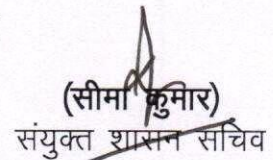 (सीमा कुमार)
संयुक्त शासन सचिव